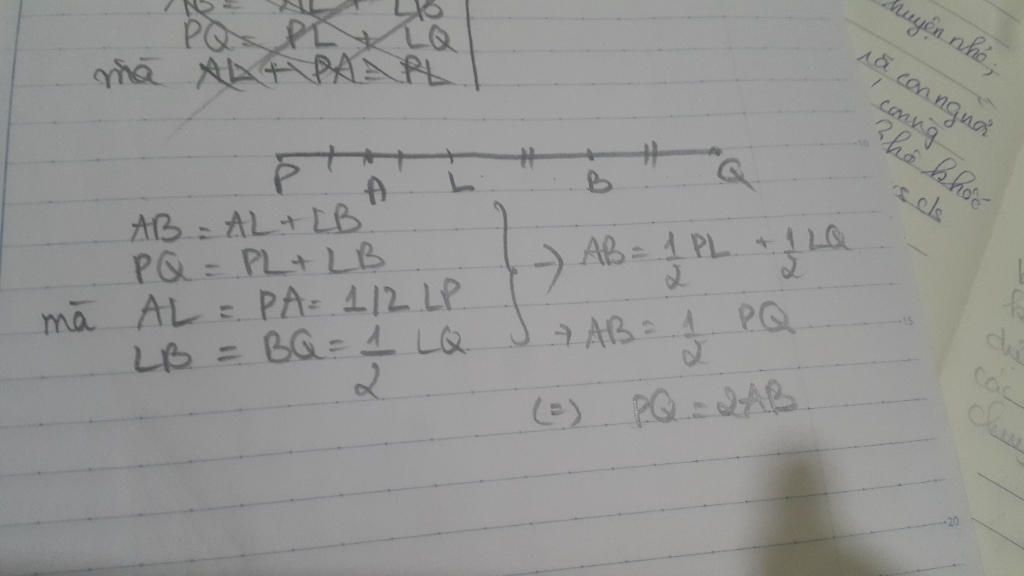 AB = AL + LB
PQ = PL + LQ
mà AL + PA = PL
P A L B Q
AB = AL + LB
PQ = PL + LB
mà AL = PA = 1/2 LP
LB = BQ = 1/2 LQ
→ AB = 1/2 PL + 1/2 LQ
→ AB = 1/2 PQ
(=) PQ = 2AB
chuyên nhỏ;
con người
con
khóc
10
15
20